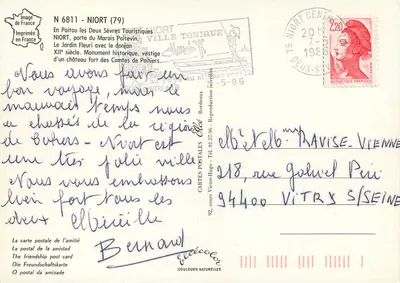 Image de France
Imprimée en France
N 6811 - NIORT (79)
En Poitou les Deux Sèvres Touristiques
NIORT, porte du Marais Poitevin.
Le Jardin Fleuri avec le donjon
XIIe siècle. Monument historique, vestige
d'un château fort des Comtes de Poitiers.
NIORT
VILLE TONIQUE
5-86
79 NIORT
DEUX-S
2,20
Nous avons fait un
bon voyage, mais le
mauvais temps nous
a chassés de la région
de Cahors - Niort est
une très jolie ville
Nous vous embrassons
bien fort tous les
deux Mireille
Bernard
M et Mme RAVISE-VIENNE
218, rue Gabriel Peri
94400 VITRY S/SEINE
CARTES POSTALES
Bordeaux
La carte postale de l'amitié
La postal de la amistad
The friendship post card
Die Freundschaftskarte
O postal da amizade
COULEURS NATURELLES